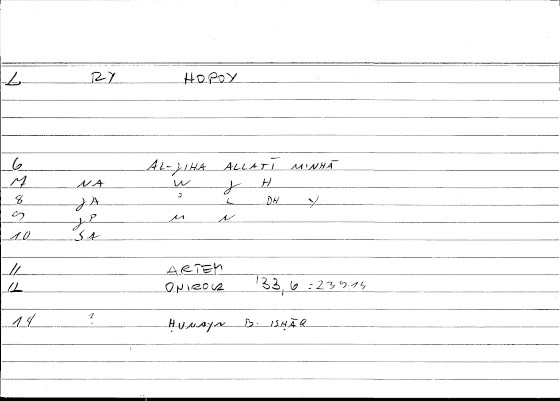 L RY HOPOY
6 AL-JIHA ALLATĪ MINHĀ
7 NA W J H
8 JA ʾ L DH Y
9 JP M N
10 SA
11 ARTEM
12 ONIROCR 133,6 =
14 ? ḤUNAYN B. ISḤĀQ